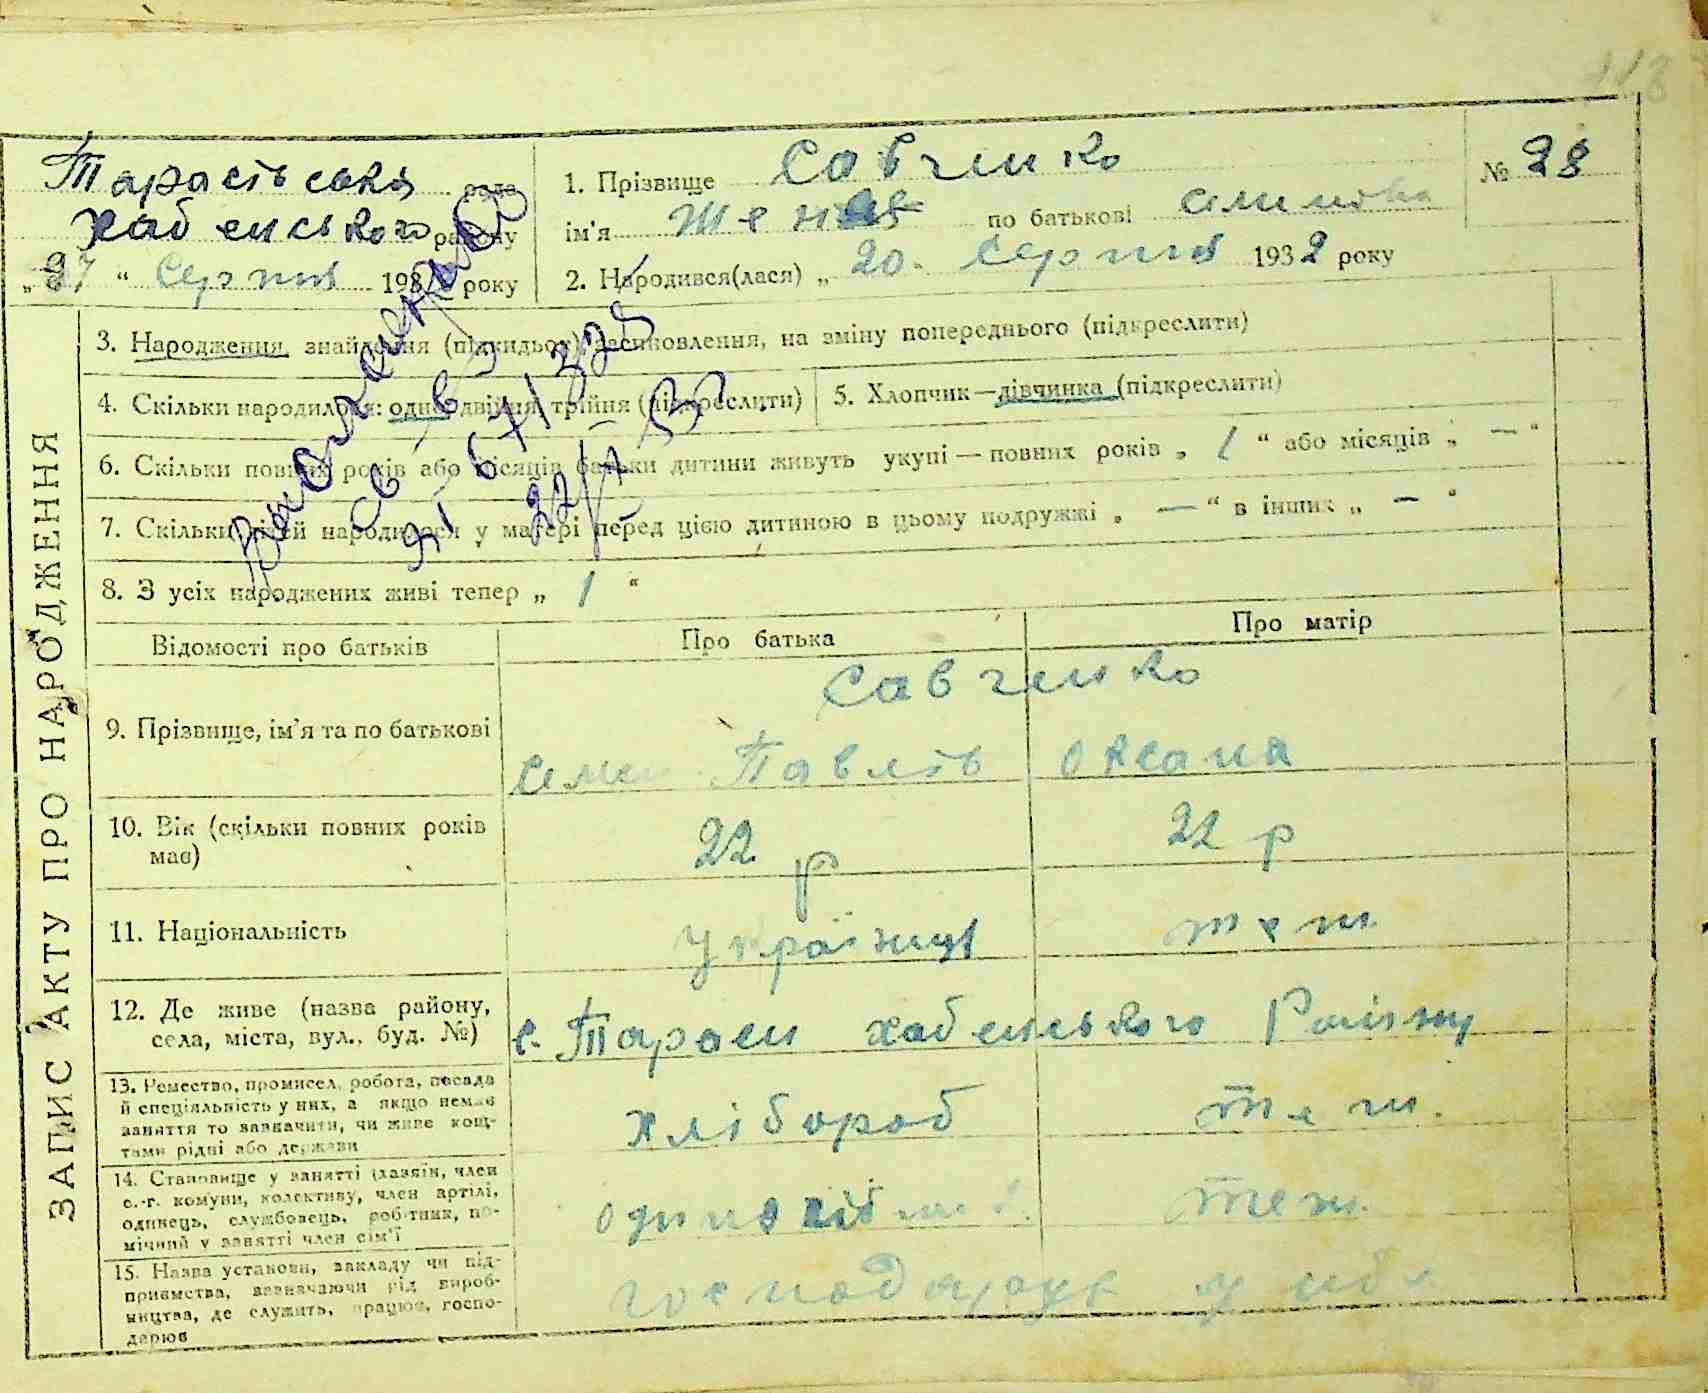 118
Тарасівська рада
Хабенського району
„27“ Серпня 1932 року
1. Прізвище Савченко
ім'я Женя по батькові Семенова
2. Народився(лася) „20. Серпня 1932 року
№ 28
ЗАПИС АКТУ ПРО НАРОДЖЕННЯ
3. Народження, знайдення (підкидьок), всиновлення, на зміну попереднього (підкреслити)
4. Скільки народилося: одно, двійня, трійня (підкреслити)
5. Хлопчик—дівчинка (підкреслити)
6. Скільки повних років або місяців батьки дитини живуть укупі — повних років „ 1 “ або місяців „ — “
7. Скільки дітей народилося у матері перед цією дитиною в цьому подружжі „ — “ в інших „ — “
8. З усіх народжених живі тепер „ 1 “
Відомості про батьків
Про батька
Про матір
9. Прізвище, ім'я та по батькові
Савченко
Семен Павлів
Оксана
10. Вік (скільки повних років має)
22 р
22 р
11. Національність
Українці
теж
12. Де живе (назва району, села, міста, вул., буд. №)
с. Тараси Хабенського Району
13. Ремество, промисел, робота, посада й спеціяльність у них, а якщо немає заняття то зазначити, чи живе коштами рідні або держави
хлібороб
теж.
14. Становище у занятті (хазяїн, член с.-г. комуни, колективу, член артілі, одинець, службовець, робітник, помічний у занятті член сім'ї
теж.
15. Назва установи, закладу чи підприємства, зазначаючи рід виробництва, де служить, працює, господарює
господарює у себе